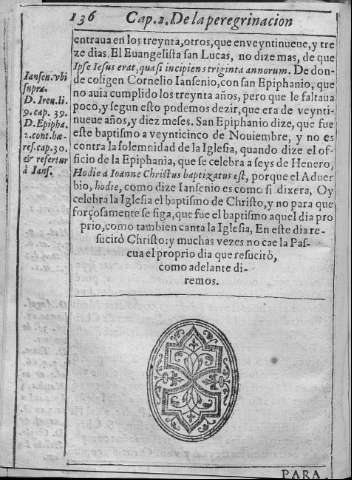 136 Cap. 2. De la peregrinacion
entraua en los treynta, otros, que en veyntinueue, y tre
ze dias. El Euangelista san Lucas, no dize mas, de que
Ipse Iesus erat, quasi incipiens triginta annorum. De don-
de coligen Cornelio Iansenio, con san Epiphanio, que
no auia cumplido los treynta años, pero que le faltaua
poco, y segun esto podemos dezir, que era de veynti-
nueue años, y diez meses. San Epiphanio dize, que fue
este baptismo a veynticinco de Nouiembre, y no es
contra la solemnidad de la Iglesia, quando dize el of-
ficio de la Epiphania, que se celebra a seys de Henero,
Hodie à Ioanne Christus baptizatus est, porque el Aduer
bio, hodie, como dize Iansenio es como si dixera, Oy
celebra la Iglesia el baptismo de Christo, y no para que
forçosamente se siga, que fue el baptismo aquel dia pro
prio, como tambien canta la Iglesia, En este dia re-
sucitò Christo: y muchas vezes no cae la Pas-
cua el proprio dia que resucitò,
como adelante di-
remos.
Iansen. vbi
supra.
D. Iren. li.
9. cap. 39.
D. Epipha.
2. cont. hæ-
res. cap. 30.
& refertur
à Ians.
PARA